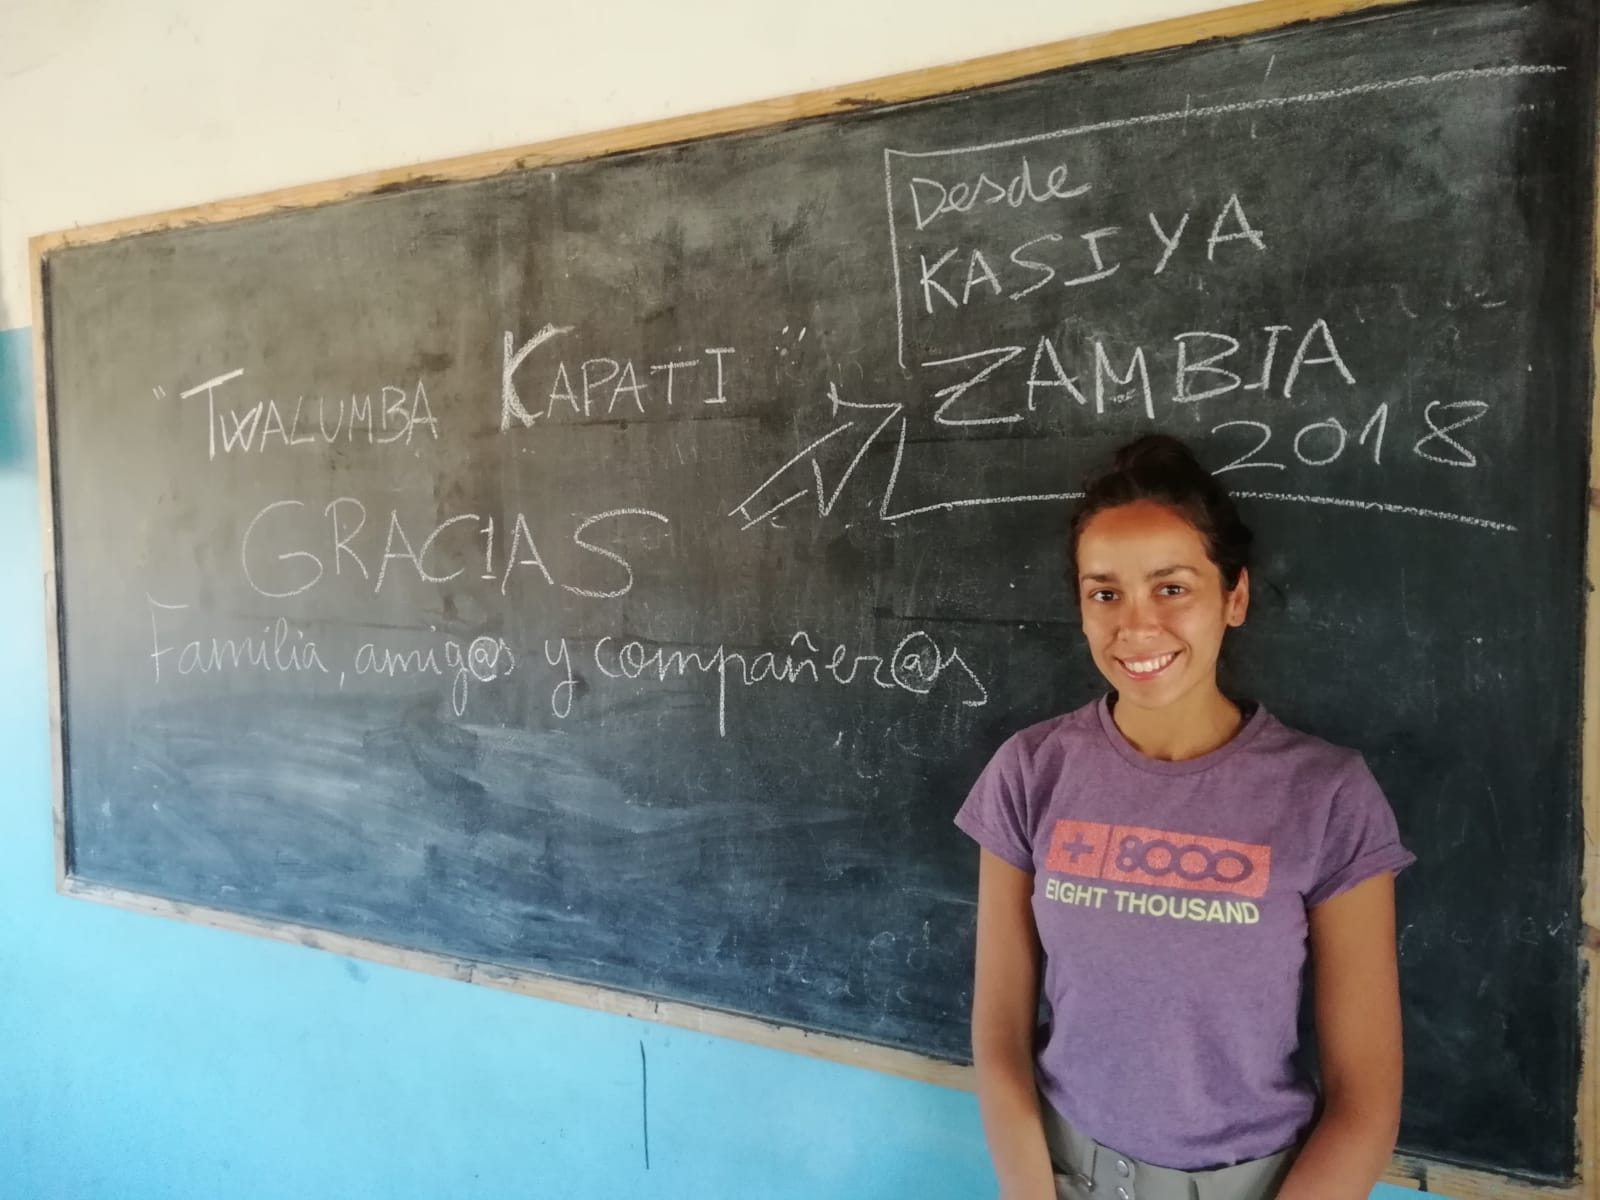 "TWALUMBA KAPATI"
GRACIAS
Familia, amig@s y compañer@s
Desde
KASIYA
ZAMBIA
2018
+ 8000
EIGHT THOUSAND